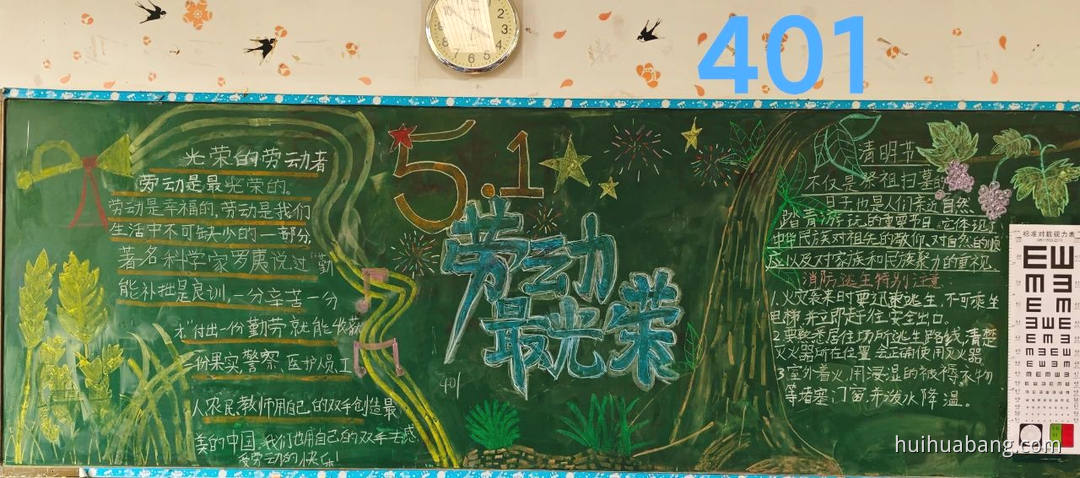 401
5.1
劳动
最光荣
光荣的劳动者
劳动是最光荣的,
劳动是幸福的,劳动是我们
生活中不可缺少的一部分,
著名科学家罗庚说过"勤
能补拙是良训,一分辛苦一分
才"付出一份勤劳就能收获
一份果实,警察,医护人员,工
人农民教师用自己的双手创造最
美的中国,我们也用自己的双手去感
受劳动的快乐!
401
清明节
不仅是祭祖扫墓的
日子也是人们亲近自然
踏青游玩的重要节日,它体现了
中华民族对祖先的敬仰,对自然的顺
应以及对家族和民族聚力的重视.
消防逃生特别注意
1.火灾袭来时要迅速逃生,不可乘坐
电梯,并立即赶往安全出口.
2.要熟悉居住场所逃生路线,清楚
灭火器所在位置会正确使用灭火器
3.室外着火,用浸湿的被褥衣物
等堵塞门窗,并泼水降温。
标准对数视力表
huihuabang.com